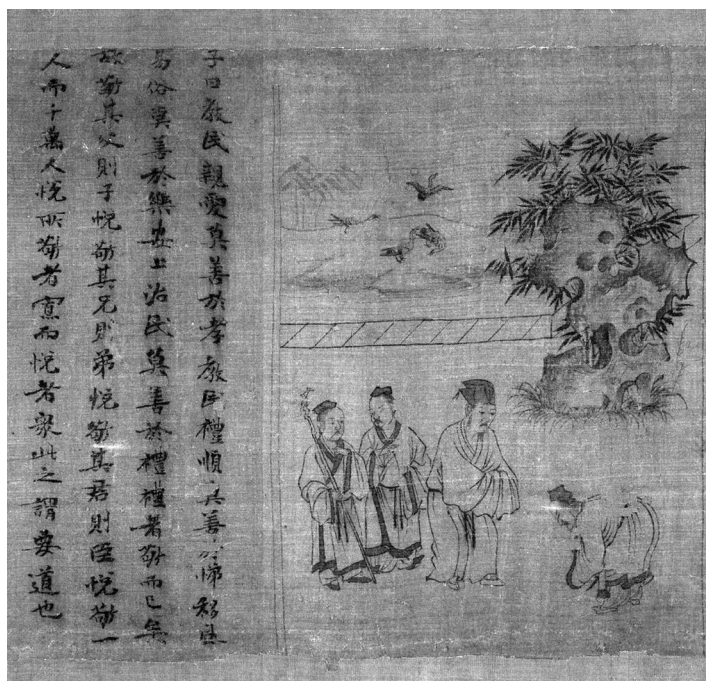 子曰教民親愛莫善於孝教民禮順莫善於悌移風
易俗莫善於樂安上治民莫善於禮禮者敬而已矣
故敬其父則子悅敬其兄則弟悅敬其君則臣悅敬一
人而千萬人悅所敬者寡而悅者衆此之謂要道也